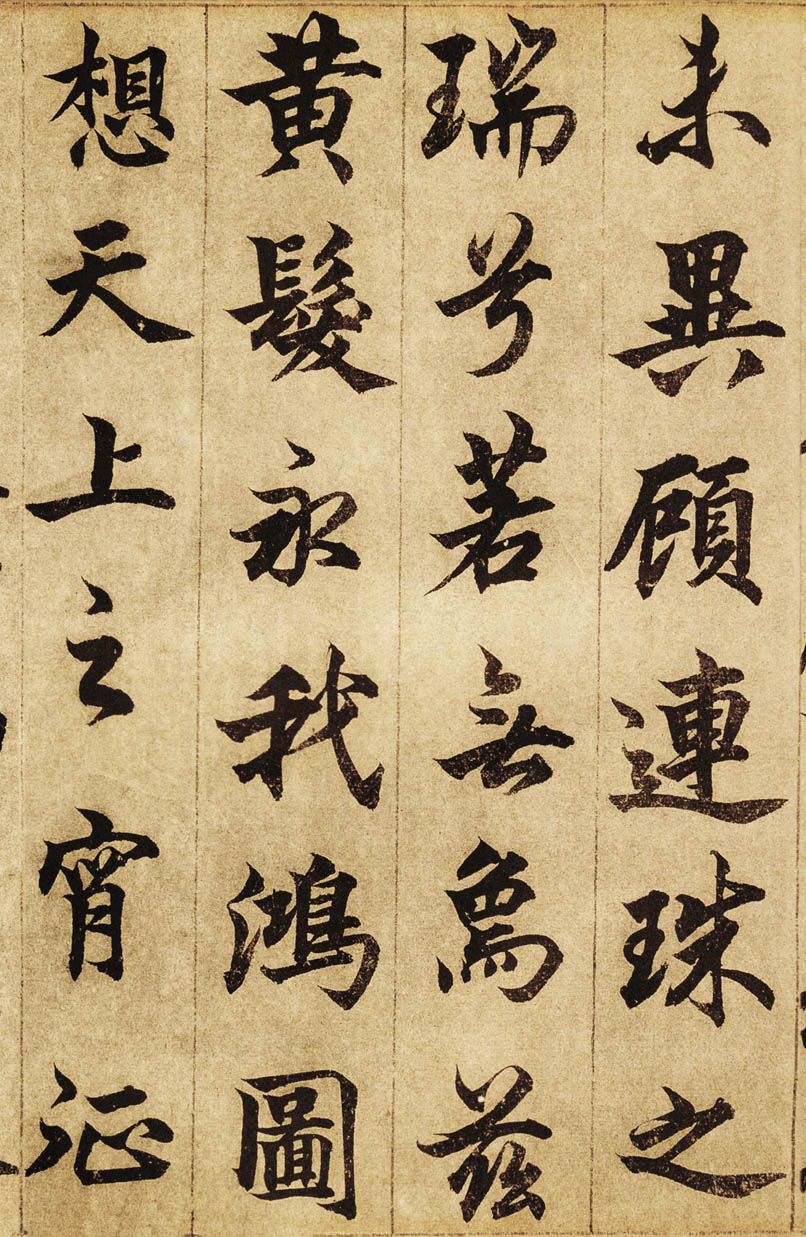 未異顧連珠之
瑞兮若無象茲
黃髮永我鴻圖
想天上之宵征